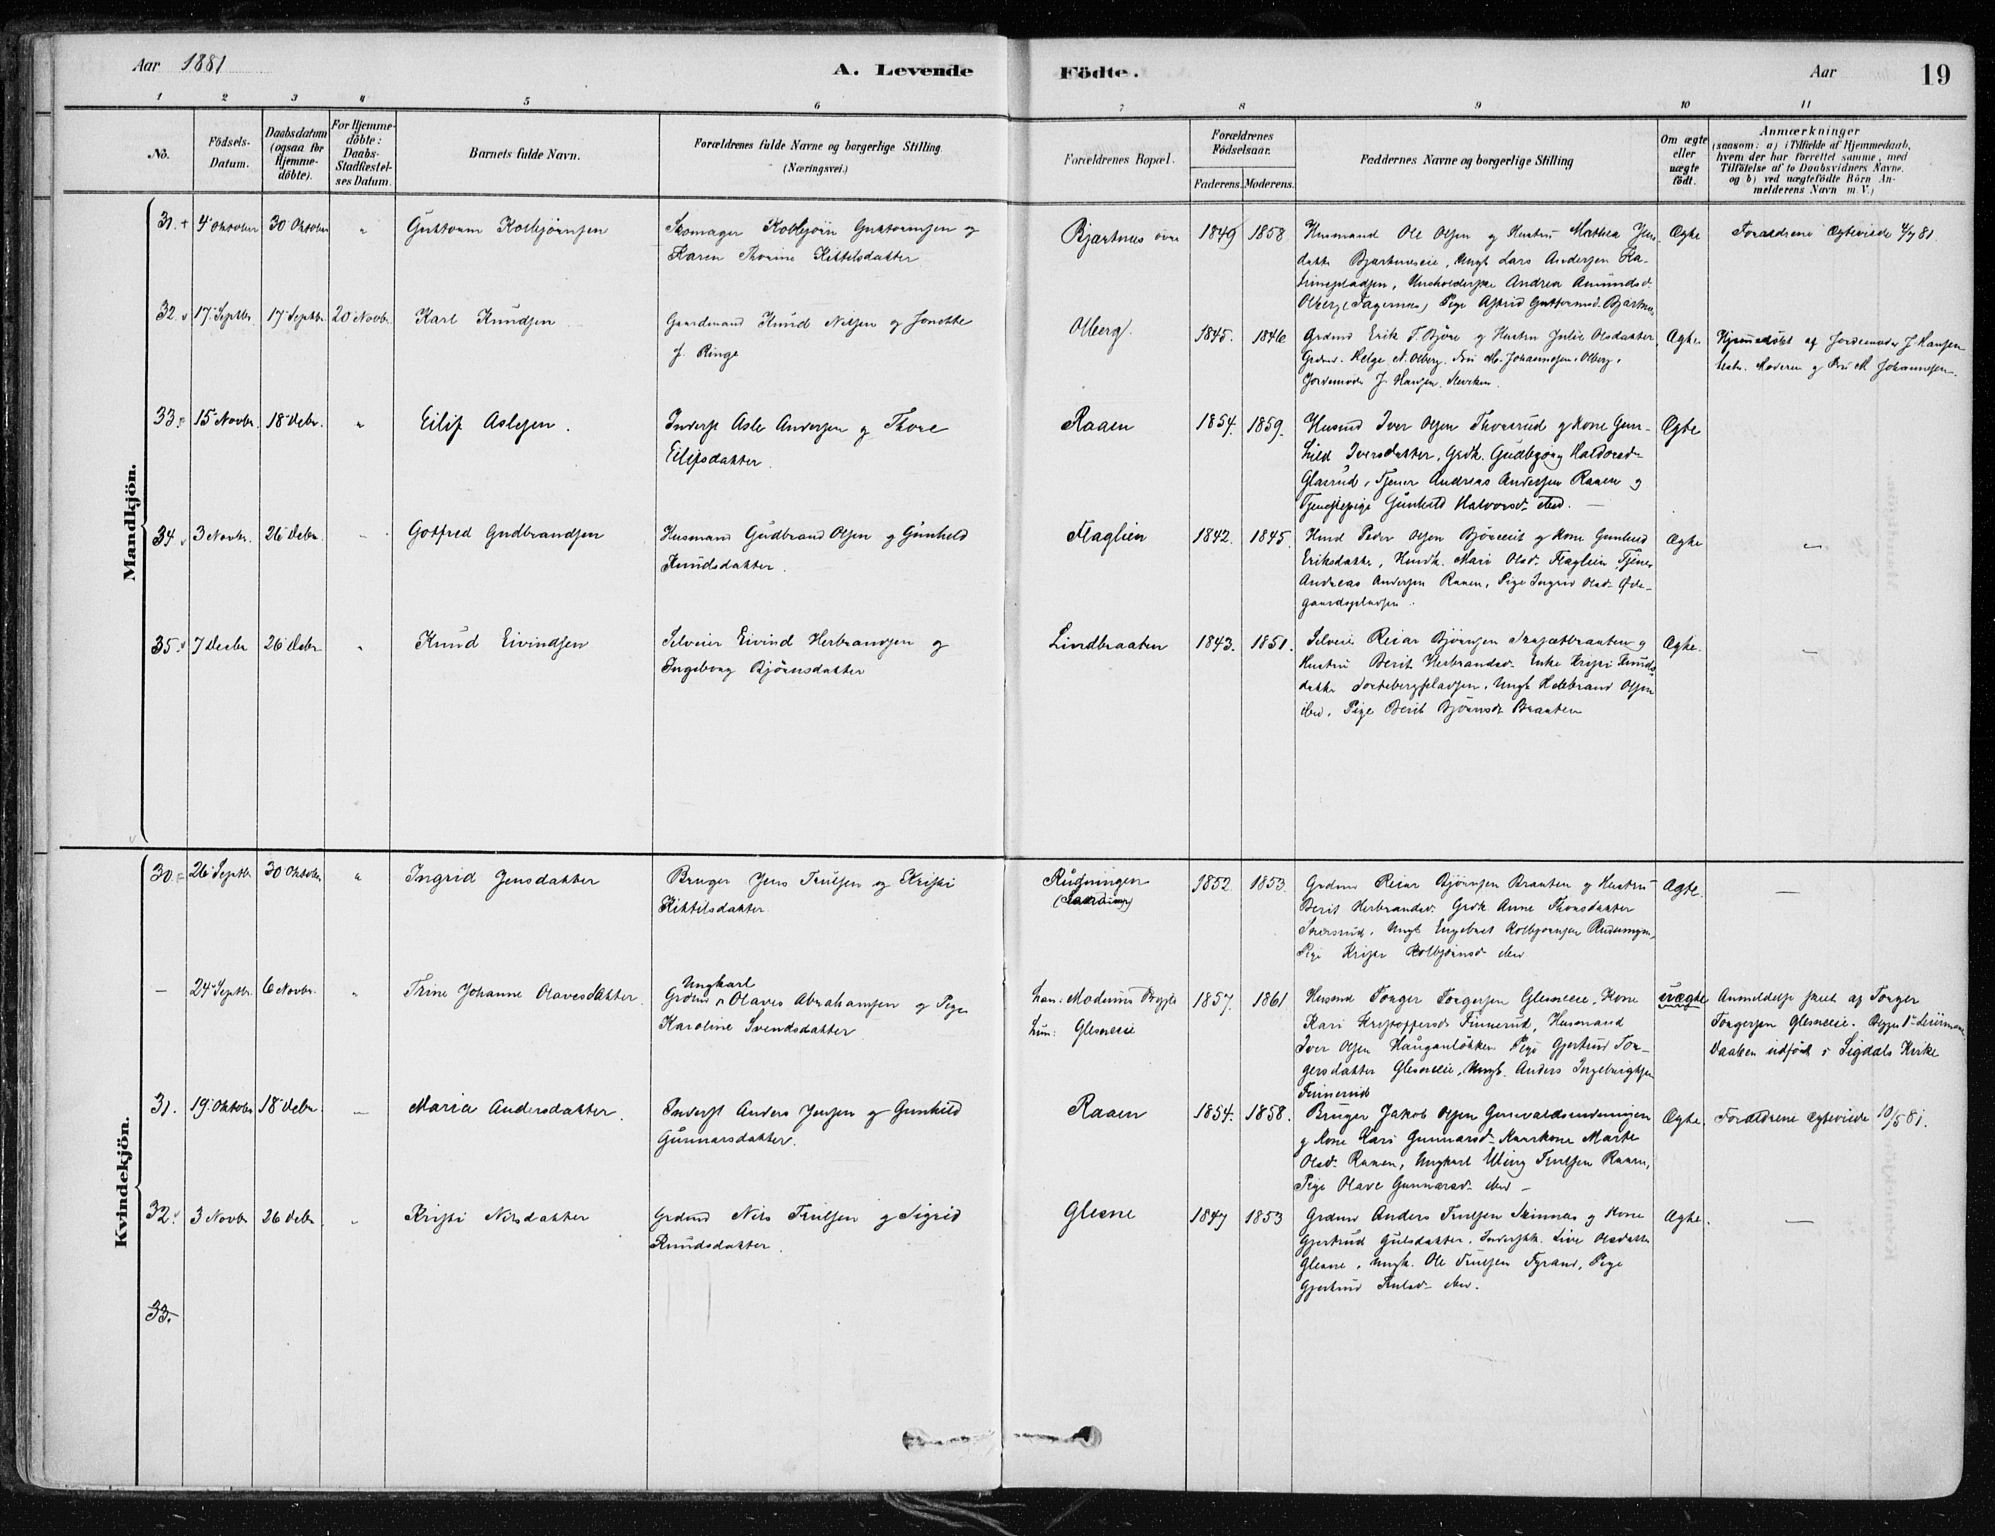 Aar 1881
A. Levende
Födte.
Aar
19
1 2 3 4 5 6 7 8 9 10 11
No.
Födsels-
Datum.
Daabsdatum
(ogsaa for
Hjemme-
döbte).
For Hjemme-
döbte:
Daabs-
Stadfæstel-
ses Datum.
Barnets fulde Navn.
Forældrenes fulde Navne og borgerlige Stilling
(Næringsvei.)
Forældrenes Bopæl.
Forældrenes
Födselsaar.
Faderens. Moderens.
Faddernes Navne og borgerlige Stilling
Om ægte
eller
uægte
födt.
Anmærkninger
(saasom: a) i Tilfælde af Hjemmedaab,
hvem der har forrettet samme, med
Tilföielse af to Daabsvidners Navne.
og b) ved uægtefödte Börn An-
melderens Navn m. V.)
Mandkjön.
31. 4 Oktober 30 Oktober " Guttorm Kolbjørnsen
Skomager Kolbjørn Guttormsen og
Karen Thorine Kittilsdatter
Bjertnes øvre 1849 1858.
Husmand Ole Olsen og Hustru Mathea Jens
datter Bjertneseie, Ungk Lars Andersen Ka-
trinepladsen, Huusholderske Andrea Amundsd.
Olberg (Fagernes) Pige Astrid Guttormsd. Bjertnes
Ægte Forældrene Ægteviede 4/7 81.
32. 17 Septbr. 17 Septbr. 20 Novbr. Karl Knudsen
Gaardmand Knud Nilsen og Jonette
f. Ringe
Olberg. 1845. 1846
Grdmd Erik T. Bjøre og Hustru Julie Olsdatter
Grdmd. Helge N. Olberg. Fru M. Johannesen. Olberg,
Jordemoder J. Hansen.
Ægte Hjemmedøbt af Jordemoder J Hansen
Moderen og Fru M Johannesen.
33. 15 Novbr. 18 Debr. " Eilif Aslesen.
Inderst Asle Andersen og Thore
Eilifsdatter.
Raaen 1854. 1859.
Husmd Iver Olsen Thorsrud og Kone Gun-
hild Iversdatter, Grdk. Gudbjørg Haldorsd-
Glasrud, Tjener Andreas Andersen Raaen og
Tjenestepige Gunhild Halvorsd- ibid. -
Ægte
34 3 Novbr. 26 Debr. - Gotfred Gudbrandsen
Husmand Gudbrand Olsen og Gunhild
Knudsdatter.
Flaglien 1842. 1845.
Husmd Peder Olsen og Kone Gunhild
Eriksdatter, Husmdk. Mari Olsd- Flaglien Tjener
Andreas Andersen Raaen, Pige Ingrid Olsd- Øde-
gaardspladsen.
Ægte -
35. 7 Debr 26 Debr " Knud Eivindsen
Selveier Eivind Herbrandsen og
Ingeborg Bjørnsdatter
Lindbraaten 1843. 1851.
Selveier Reiar Bjørnsen og
Hustru Berit Herbrandsd- Enke Kristi Knuds-
datter, Ungk Hellebrand Olsen
ibid, Pige Berit Bjørnsd- Braaten
Ægte. -
Kvindekjön.
30. 26 Septbr 30 Oktober " Ingrid Jensdatter
Bruger Jens Trulsen og Kristi
Kittilsdatter.
Rudningen 1852. 1853.
Grdmd Reiar Bjørnsen Braaten og Hustru
Berit Herbrandsd. Grdk Anne Thorsdatter
Ungk Engebret Kolbjørnsen
Pige Kristi Kolbjørnsd- ibid
Ægte. -
- 24 Septbr. 6 Novbr. " Trine Johanne Olavesdatter.
Ungkarl
Olaves Abrahamsen og Pige
Karoline Svendsdatter
han: Modums
hun: Glesneeie
1857. 1861
Husmd Torger Torgersen Glesneeie, Kone
Kari Kristoffersd- Finnerud, Husmand
Iver Olsen Hauganløkken Pige Gjertrud Tor-
gersdatter Glesneeie, Ungk. Anders Ingebrigtsen
Finnerud
uægte Anmeldelse skeet af Torger
Torgersen Glesneeie.
Daaben udført i Sigdals Kirke
31. 19 Oktober 18 Debr. - Maria Andersdatter.
Inderst Anders Jensen og Gunhild
Gunnarsdatter.
Raaen 1854. 1858.
Bruger Jakob Olsen
og Kone Kari Gunnarsd- Kaarkone Marte
Olsd- Raaen, Ungkarl Trulsen Raaen,
Pige Olave Gunnarsd- ibid -
Ægte. Forældrene Ægteviede 10/5 81.
32. 3 Novbr 26 Debr. " Kristi Nilsdatter
Grdmd Nils Trulsen og Sigrid
Knudsdatter.
Glesne 1847 1853
Grdmd Anders Trulsen Skinnes og Kone
Gjertrud Gulsdatter, Live Olsdatter
Glesne, Ungk. Ole Trulsen Fyrand, Pige
Gjertrud Trulsd- ibid.
Ægte. -
33.